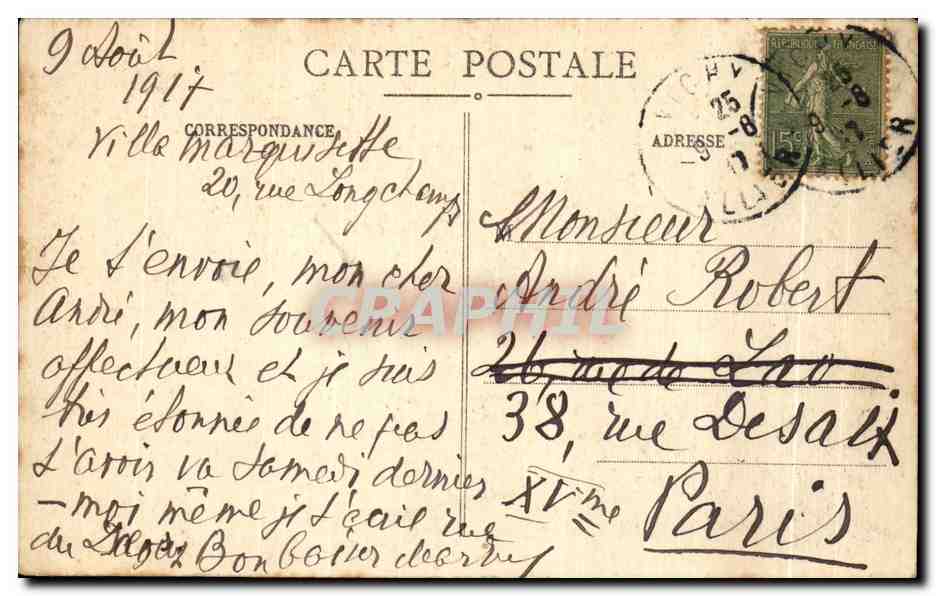 CARTE POSTALE
CORRESPONDANCE
ADRESSE
REPUBLIQUE FRANÇAISE
15c
VICHY
25
9 -8
17
ALLIER
9 Août
1917
Villa Marquisette
20, rue Longchamps
Je t'envoie, mon cher
André, mon souvenir
affectueux et je suis
très étonnée de ne pas
t'avoir vu samedi dernier
- moi même je
rue
du
Bon baiser
Monsieur
André Robert
26, rue de
38, rue Desaix
XVme
Paris
CRAPHIL